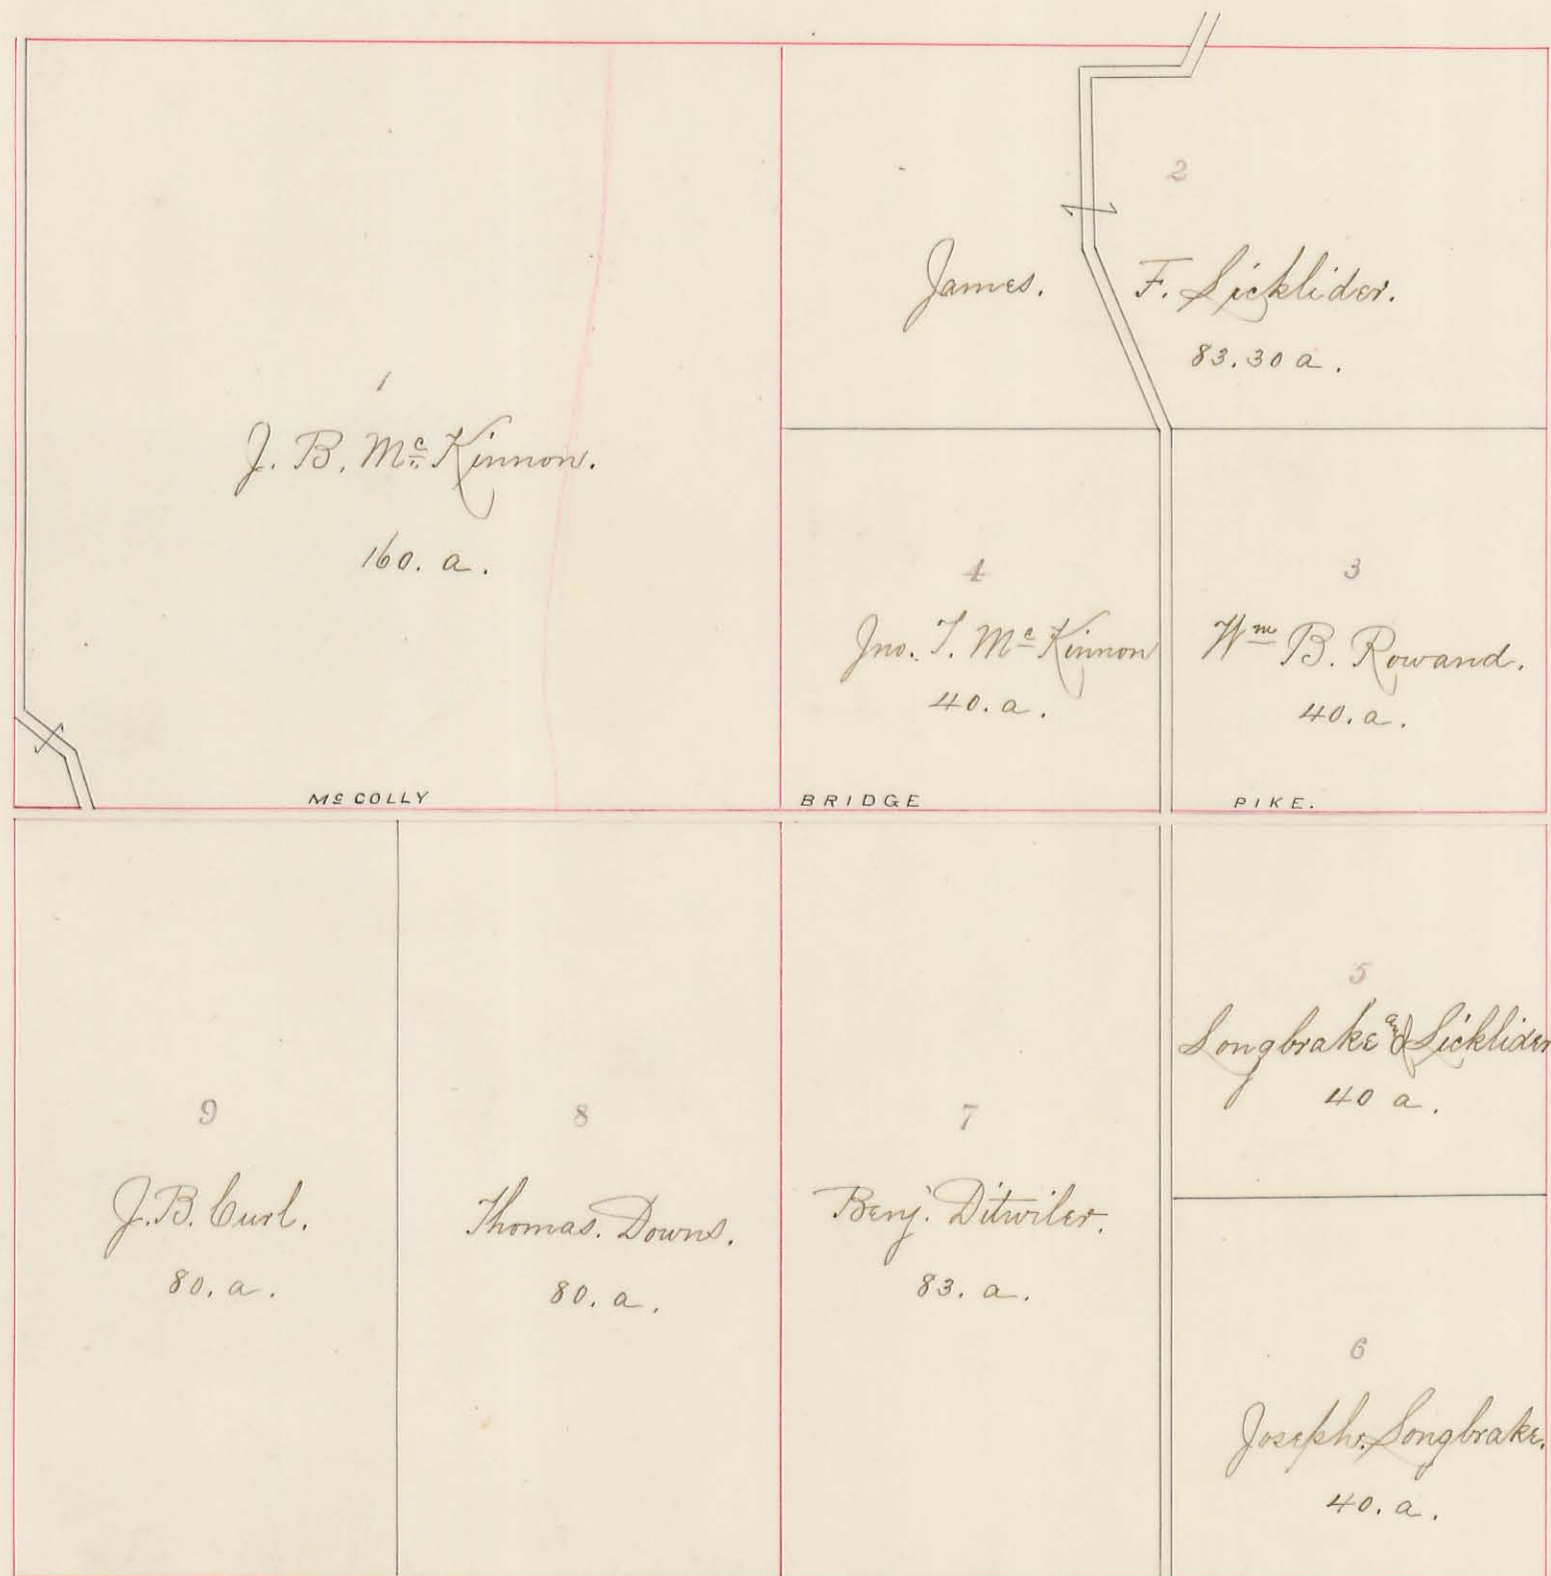 1
J. B. Mc Kinnon.
160. a.
2
James. F. Licklider.
83.30 a.
4
Jno. T. Mc Kinnon
40. a.
3
Wm B. Rowand.
40. a.
Mc COLLY BRIDGE PIKE.
9
J. B. Curl.
80. a.
8
Thomas. Downs.
80. a.
7
Benj. Ditwiler.
83. a.
5
Longbrake and Licklider
40 a.
6
Joseph. Longbrake.
40. a.